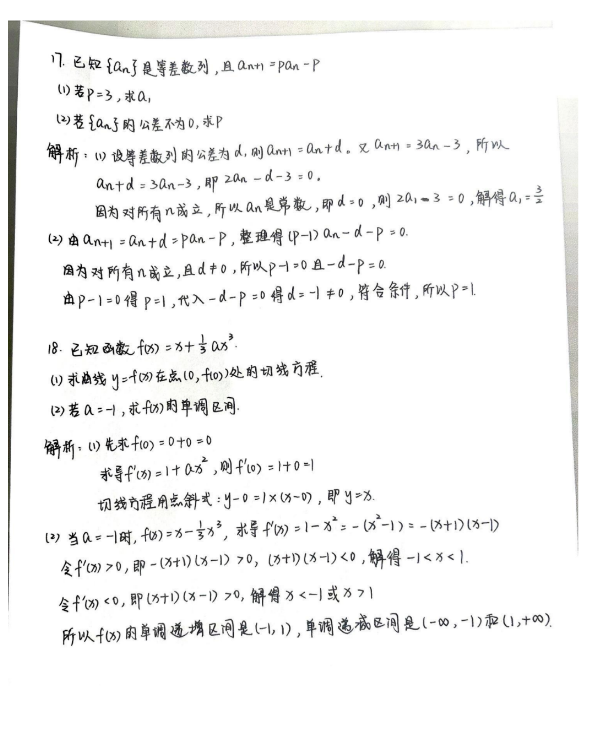 17. 已知{an}是等差数列,且an+1=pan-p
(1)若p=3,求a1
(2)若{an}的公差不为0,求p
解析:(1)设等差数列的公差为d,则an+1=an+d。又an+1=3an-3,所以
an+d=3an-3,即2an-d-3=0。
因为对所有n成立,所以an是常数,即d=0,则2a1-3=0,解得a1=3/2
(2)由an+1=an+d=pan-p,整理得(p-1)an-d-p=0.
因为对所有n成立,且d≠0,所以p-1=0且-d-p=0.
由p-1=0得p=1,代入-d-p=0得d=-1≠0,符合条件,所以p=1.
18. 已知函数f(x)=x+1/3ax³.
(1)求曲线y=f(x)在点(0,f(0))处的切线方程.
(2)若a=-1,求f(x)的单调区间.
解析:(1)先求f(0)=0+0=0
求导f'(x)=1+ax²,则f'(0)=1+0=1
切线方程用点斜式:y-0=1×(x-0),即y=x.
(2)当a=-1时,f(x)=x-1/3x³,求导f'(x)=1-x²=-(x²-1)=-(x+1)(x-1)
令f'(x)>0,即-(x+1)(x-1)>0,(x+1)(x-1)<0,解得-1<x<1.
令f'(x)<0,即(x+1)(x-1)>0,解得x<-1或x>1
所以f(x)的单调递增区间是(-1,1),单调递减区间是(-∞,-1)和(1,+∞).